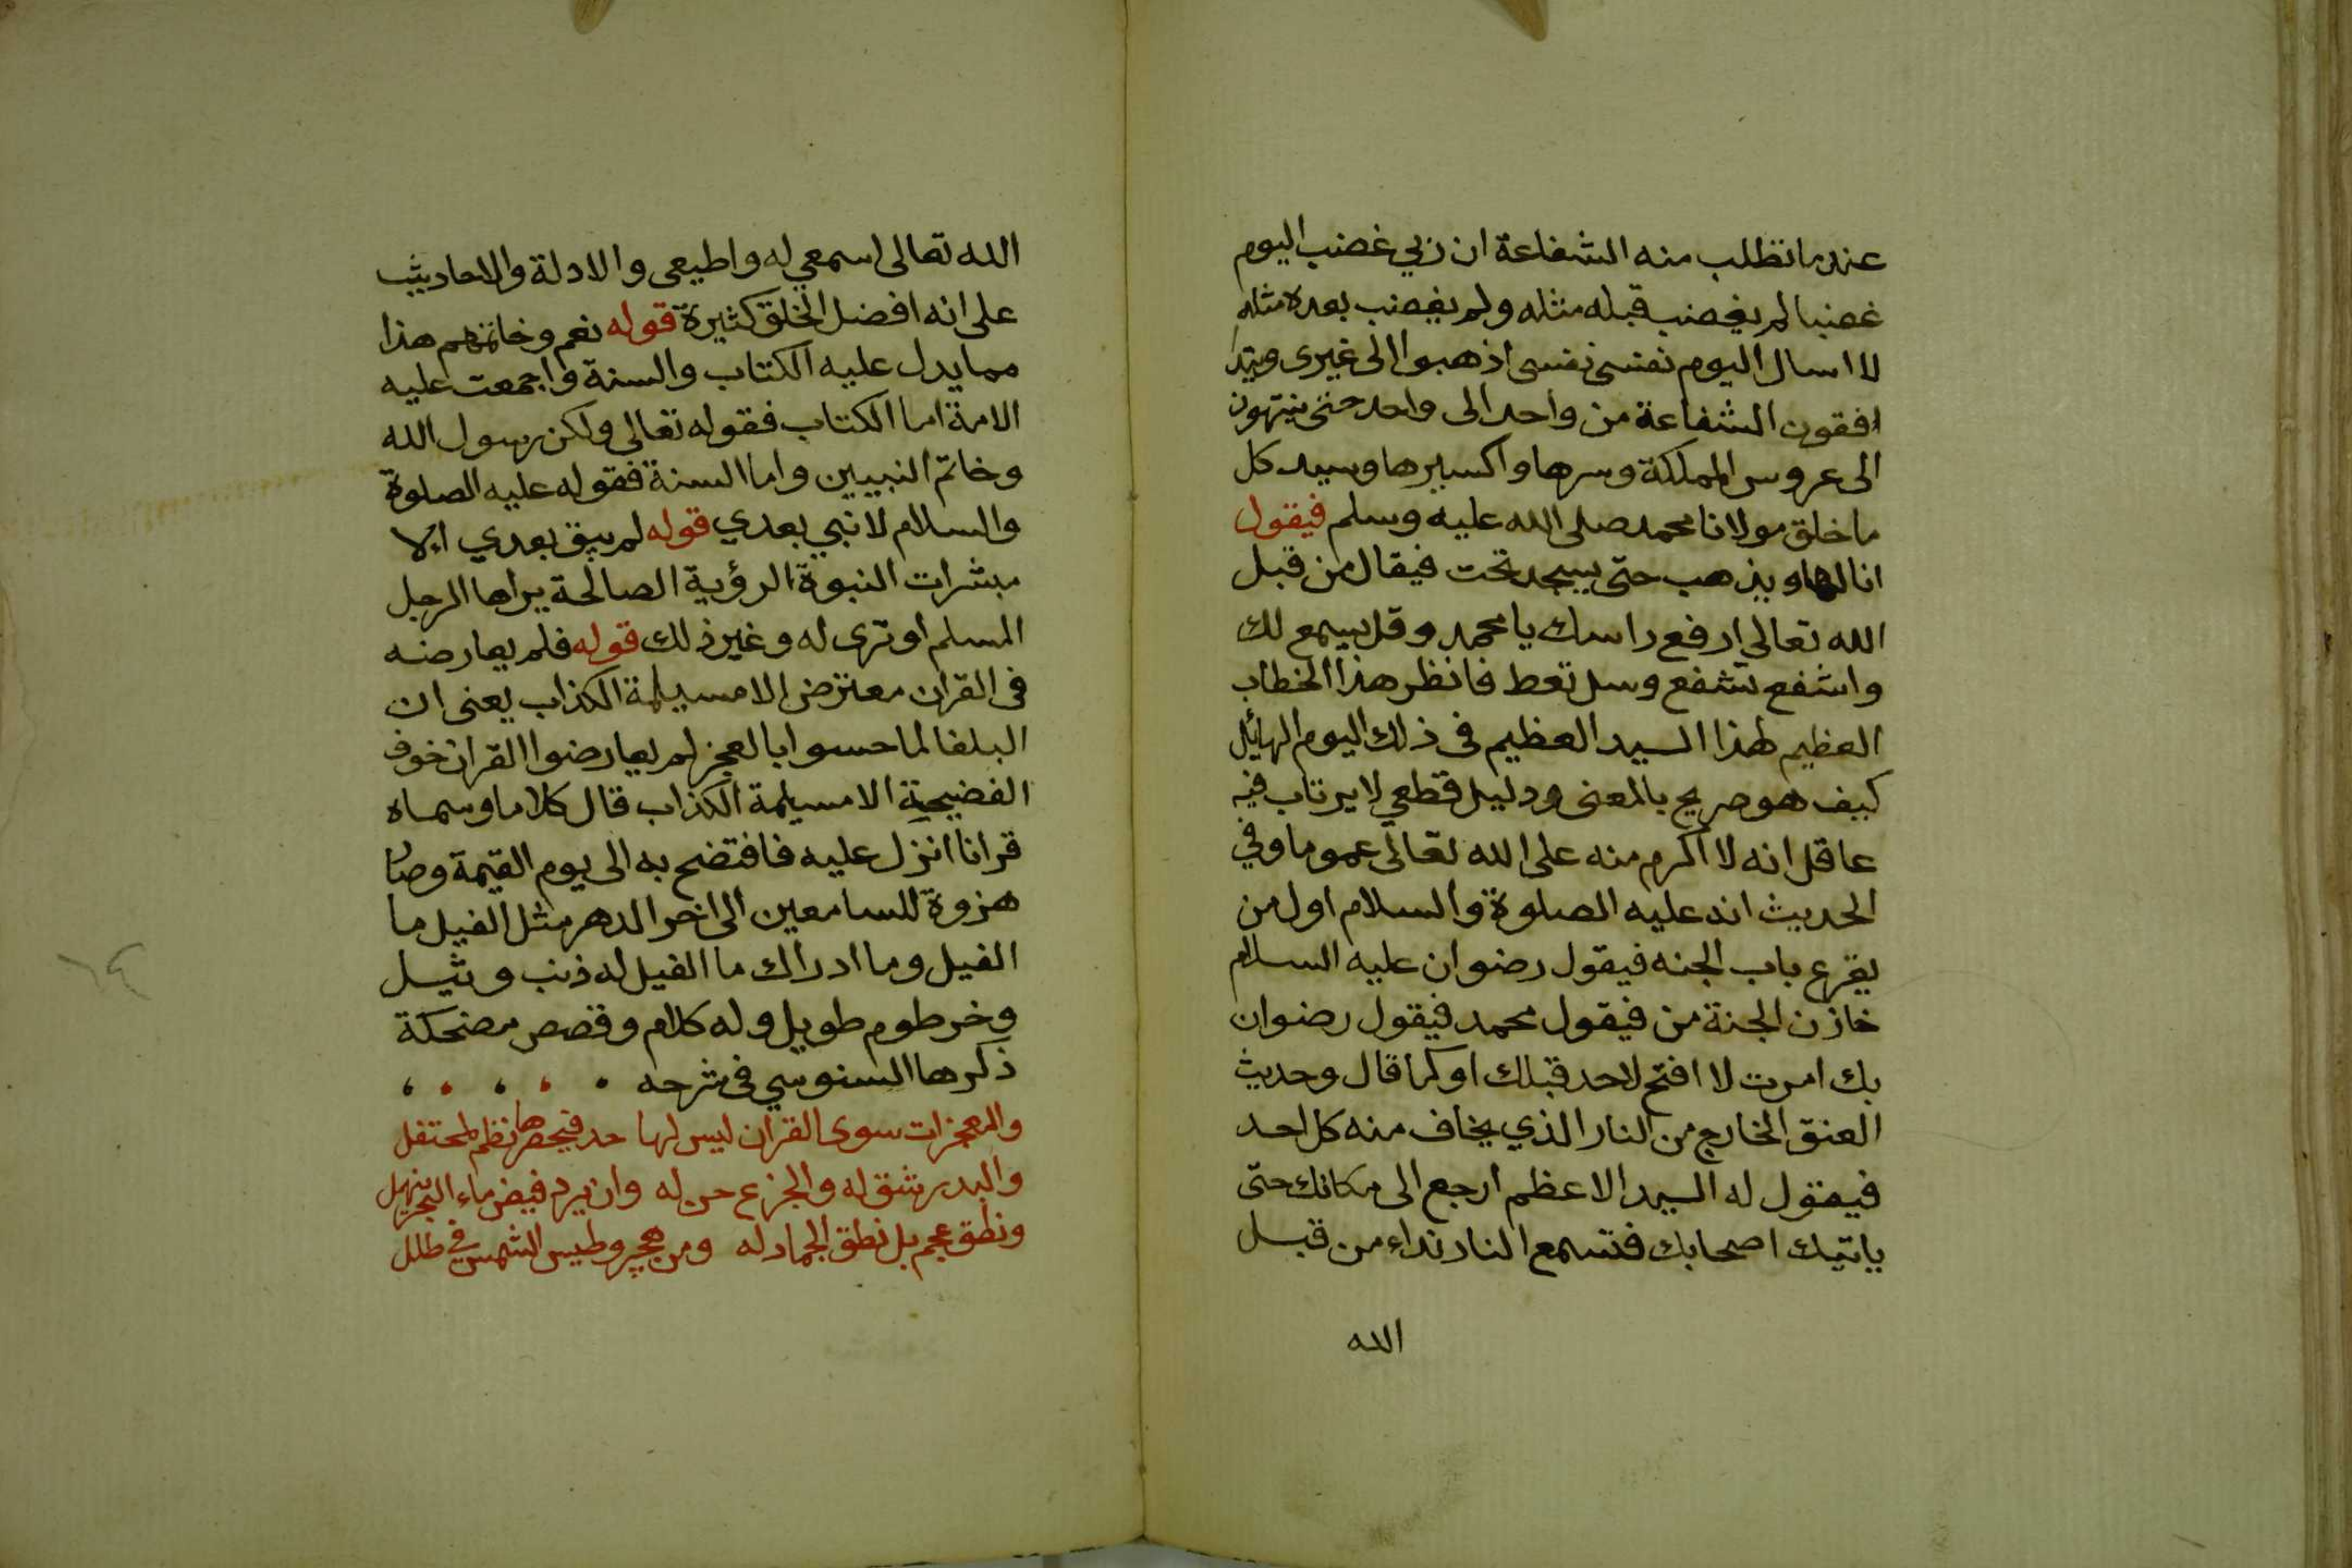 عندما تطلب منه الشفاعة ان ربي غضب اليوم
غضبا لم يغضب قبله مثله ولم يغضب بعده مثله
لا اسال اليوم نفسى نفسى اذهبوا الى غيرى ويتد
افقون الشفاعة من واحد الى واحد حتى ينتهون
الى عروس المملكة وسرها واكسيرها وسيد كل
ما خلق مولانا محمد صلى الله عليه وسلم فيقول
انا لها ويذهب حتى يسجد تحت فيقال من قبل
الله تعالى ارفع راسك يا محمد وقل يسمع لك
واشفع تشفع وسل تعط فانظر هذا الخطاب
العظيم لهذا السيد العظيم فى ذلك اليوم الهائل
كيف هو صريح بالمعنى ودليل قطعي لا يرتاب فيه
عاقل انه لا اكرم منه على الله تعالى عموما وفي
الحديث انه عليه الصلوة والسلام اول من
يقرع باب الجنه فيقول رضوان عليه السلام
خازن الجنة من فيقول محمد فيقول رضوان
بك امرت لا افتح لاحد قبلك او كما قال وحديث
العنق الخارج من النار الذي يخاف منه كل احد
فيقول له السيد الاعظم ارجع الى مكانك حتى
ياتيك اصحابك فتسمع النار نداء من قبل
الله
الله تعالى اسمعي له واطيعى والادلة والاحاديث
على انه افضل الخلق كثيرة قوله نعم وخاتمهم هذا
مما يدل عليه الكتاب والسنة واجمعت عليه
الامة اما الكتاب فقوله تعالى ولكن رسول الله
وخاتم النبيين واما السنة فقوله عليه الصلوة
والسلام لا نبي بعدي قوله لم يبق بعدي الا
مبشرات النبوة الرؤية الصالحة يراها الرجل
المسلم او ترى له وغير ذلك قوله فلم يعارضه
فى القران معترض الا مسيلمة الكذاب يعنى ان
البلغا لما حسوا بالعجز لم يعارضوا القران خوف
الفضيحة الا مسيلمة الكذاب قال كلاما وسماه
قرانا انزل عليه فافتضح به الى يوم القيمة وصار
هزوة للسامعين الى اخر الدهر مثل الفيل ما
الفيل وما ادراك ما الفيل له ذنب وثيل
وخرطوم طويل وله كلام وقصص مضحكة
ذكرها السنوسي فى شرحه
والمعجزات سوى القران ليس لها حد فيحصرها نظم لمحتفل
والبدر شق له والجزع حن له وان يرد فيض ماء البحر ينهل
ونطق عجم بل نطق الجماد له ومن وطيس الشمس في ظلل